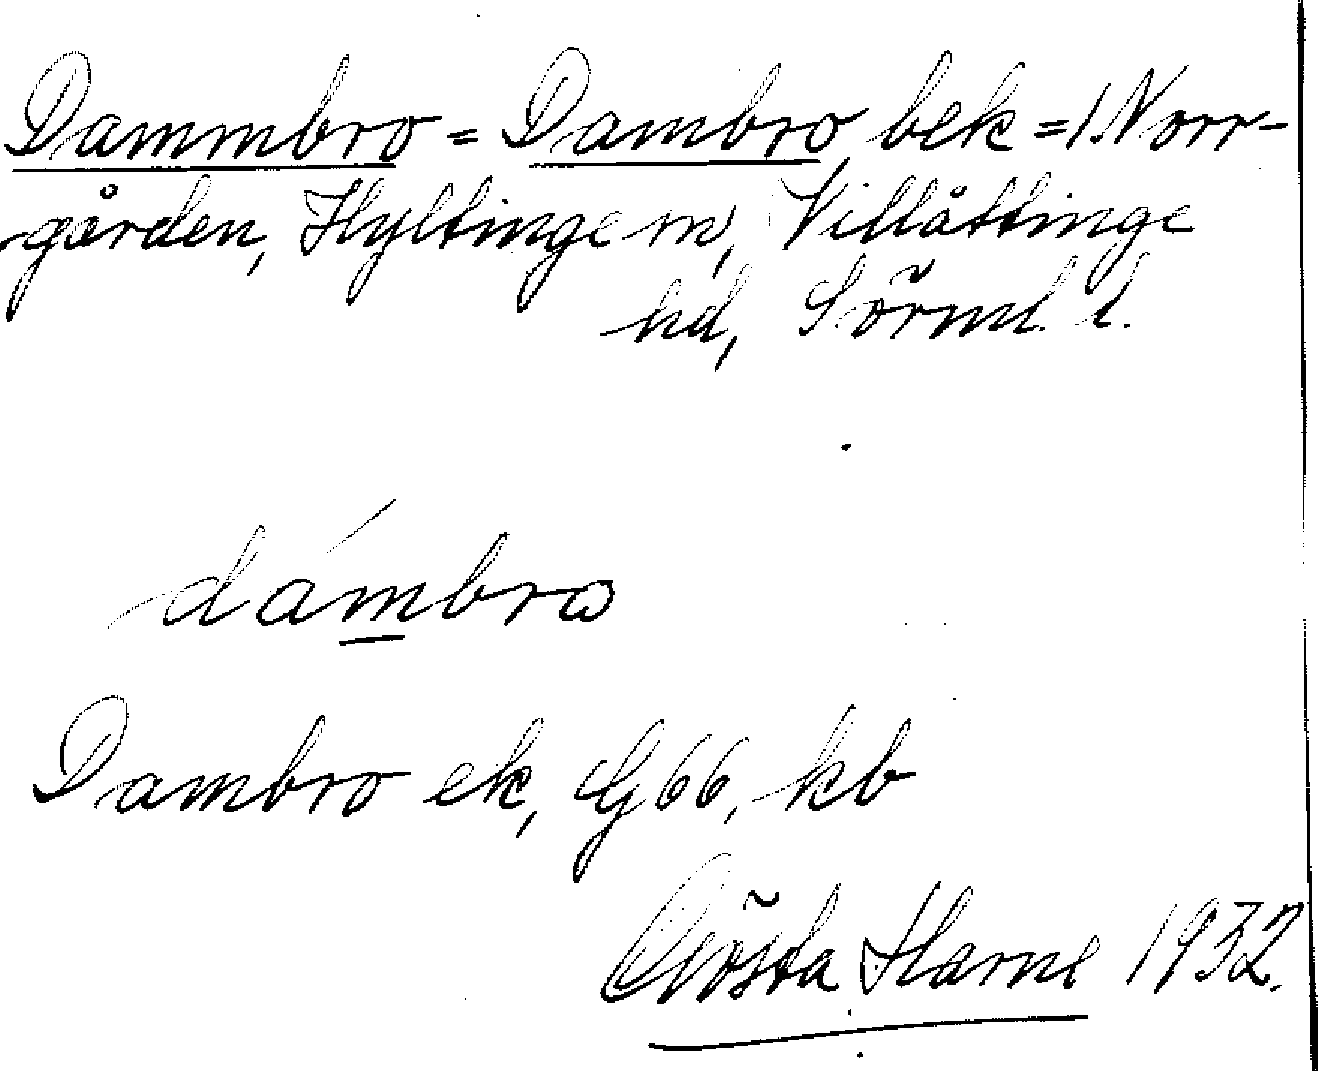 Dammbro = Dambro, bek = 1 Norr-
gården, Hyltinge sn, Villåttinge
hd, Sörml. l.
dámbro
Dambro ek, G66, kb
Gösta Harne 1932.